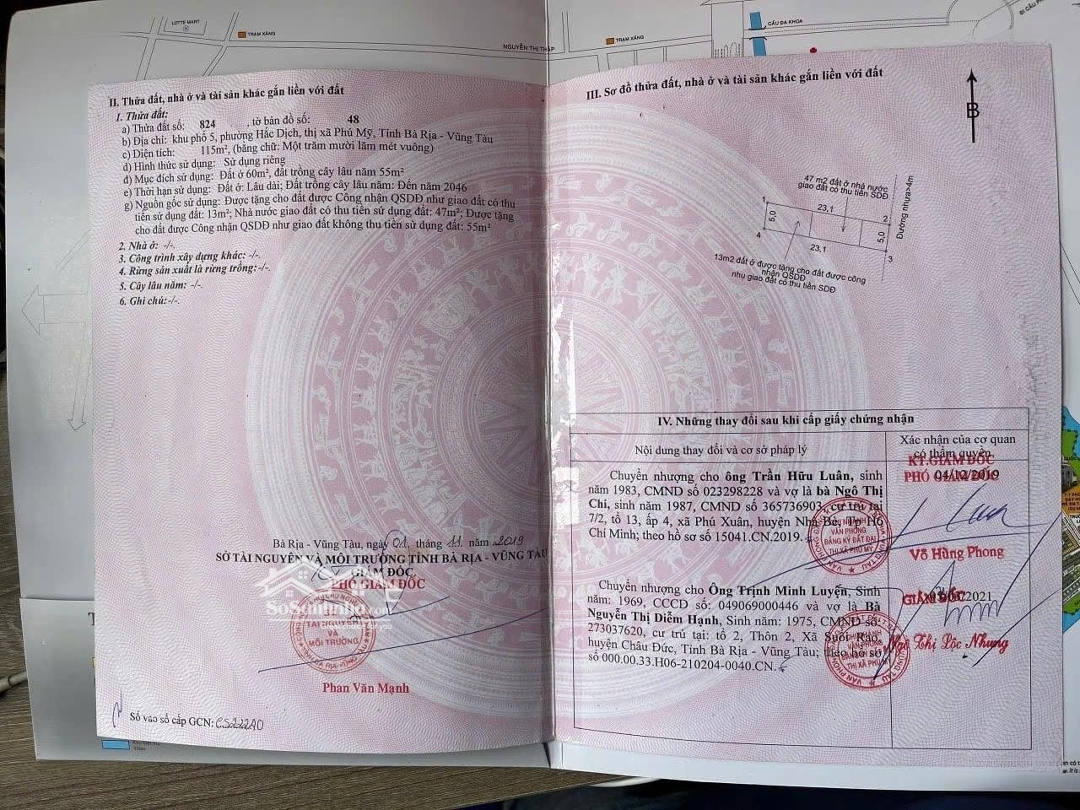 LOTTE MART
TRẠM XĂNG
NGUYỄN THỊ THẬP
TRẠM XĂNG
CẦU ĐA KHOA
II. Thửa đất, nhà ở và tài sản khác gắn liền với đất
1. Thửa đất:
a) Thửa đất số: 824 , tờ bản đồ số: 48
b) Địa chỉ: khu phố 5, phường Hắc Dịch, thị xã Phú Mỹ, Tỉnh Bà Rịa - Vũng Tàu
c) Diện tích: 115m², (bằng chữ: Một trăm mười lăm mét vuông)
d) Hình thức sử dụng: Sử dụng riêng
đ) Mục đích sử dụng: Đất ở 60m², đất trồng cây lâu năm 55m²
e) Thời hạn sử dụng: Đất ở: Lâu dài; Đất trồng cây lâu năm: Đến năm 2046
g) Nguồn gốc sử dụng: Được tặng cho đất được Công nhận QSDĐ như giao đất có thu
tiền sử dụng đất: 13m²; Nhà nước giao đất có thu tiền sử dụng đất: 47m²; Được tặng
cho đất được Công nhận QSDĐ như giao đất không thu tiền sử dụng đất: 55m²
2. Nhà ở: -/-.
3. Công trình xây dựng khác: -/-.
4. Rừng sản xuất là rừng trồng:-/-.
5. Cây lâu năm: -/-.
6. Ghi chú:-/-.
Bà Rịa - Vũng Tàu, ngày 01 tháng 11 năm 2019
SỞ TÀI NGUYÊN VÀ MÔI TRƯỜNG TỈNH BÀ RỊA - VŨNG TÀU
GIÁM ĐỐC
PHÓ GIÁM ĐỐC
SoSanhnha.com
TÀI NGUYÊN
VÀ
MÔI TRƯỜNG
Phan Văn Mạnh
Số vào sổ cấp GCN: CS22240
III. Sơ đồ thửa đất, nhà ở và tài sản khác gắn liền với đất
B
47 m2 đất ở nhà nước
giao đất có thu tiền SDĐ
1
23,1
2
5,0
5,0
Đường nhựa>4m
4
23,1
3
13m2 đất ở được tặng cho đất được công
nhận QSDĐ
như giao đất có thu tiền SDĐ
IV. Những thay đổi sau khi cấp giấy chứng nhận
Nội dung thay đổi và cơ sở pháp lý
Xác nhận của cơ quan
có thẩm quyền
Chuyển nhượng cho ông Trần Hữu Luân, sinh
năm 1983, CMND số 023298228 và vợ là bà Ngô Thị
Chi, sinh năm 1987, CMND số 365736903, cư trú tại
7/2, tổ 13, ấp 4, xã Phú Xuân, huyện Nhà Bè, Tp Hồ
Chí Minh; theo hồ sơ số 15041.CN.2019.
KT.GIÁM ĐỐC
04/12/2019
PHÓ GIÁM ĐỐC
VĂN PHÒNG
ĐĂNG KÝ ĐẤT ĐAI
THỊ XÃ PHÚ MỸ
Võ Hùng Phong
Chuyển nhượng cho Ông Trịnh Minh Luyện, Sinh
năm: 1969, CCCD số: 049069000446 và vợ là Bà
Nguyễn Thị Diễm Hạnh, Sinh năm: 1975, CMND số:
273037620, cư trú tại: tổ 2, Thôn 2, Xã Suối Rao,
huyện Châu Đức, Tỉnh Bà Rịa - Vũng Tàu; theo hồ sơ
số 000.00.33.H06-210204-0040.CN.
GIÁM ĐỐC
Ngô Thị Lộc Nhung
THỊ XÃ PHÚ MỸ